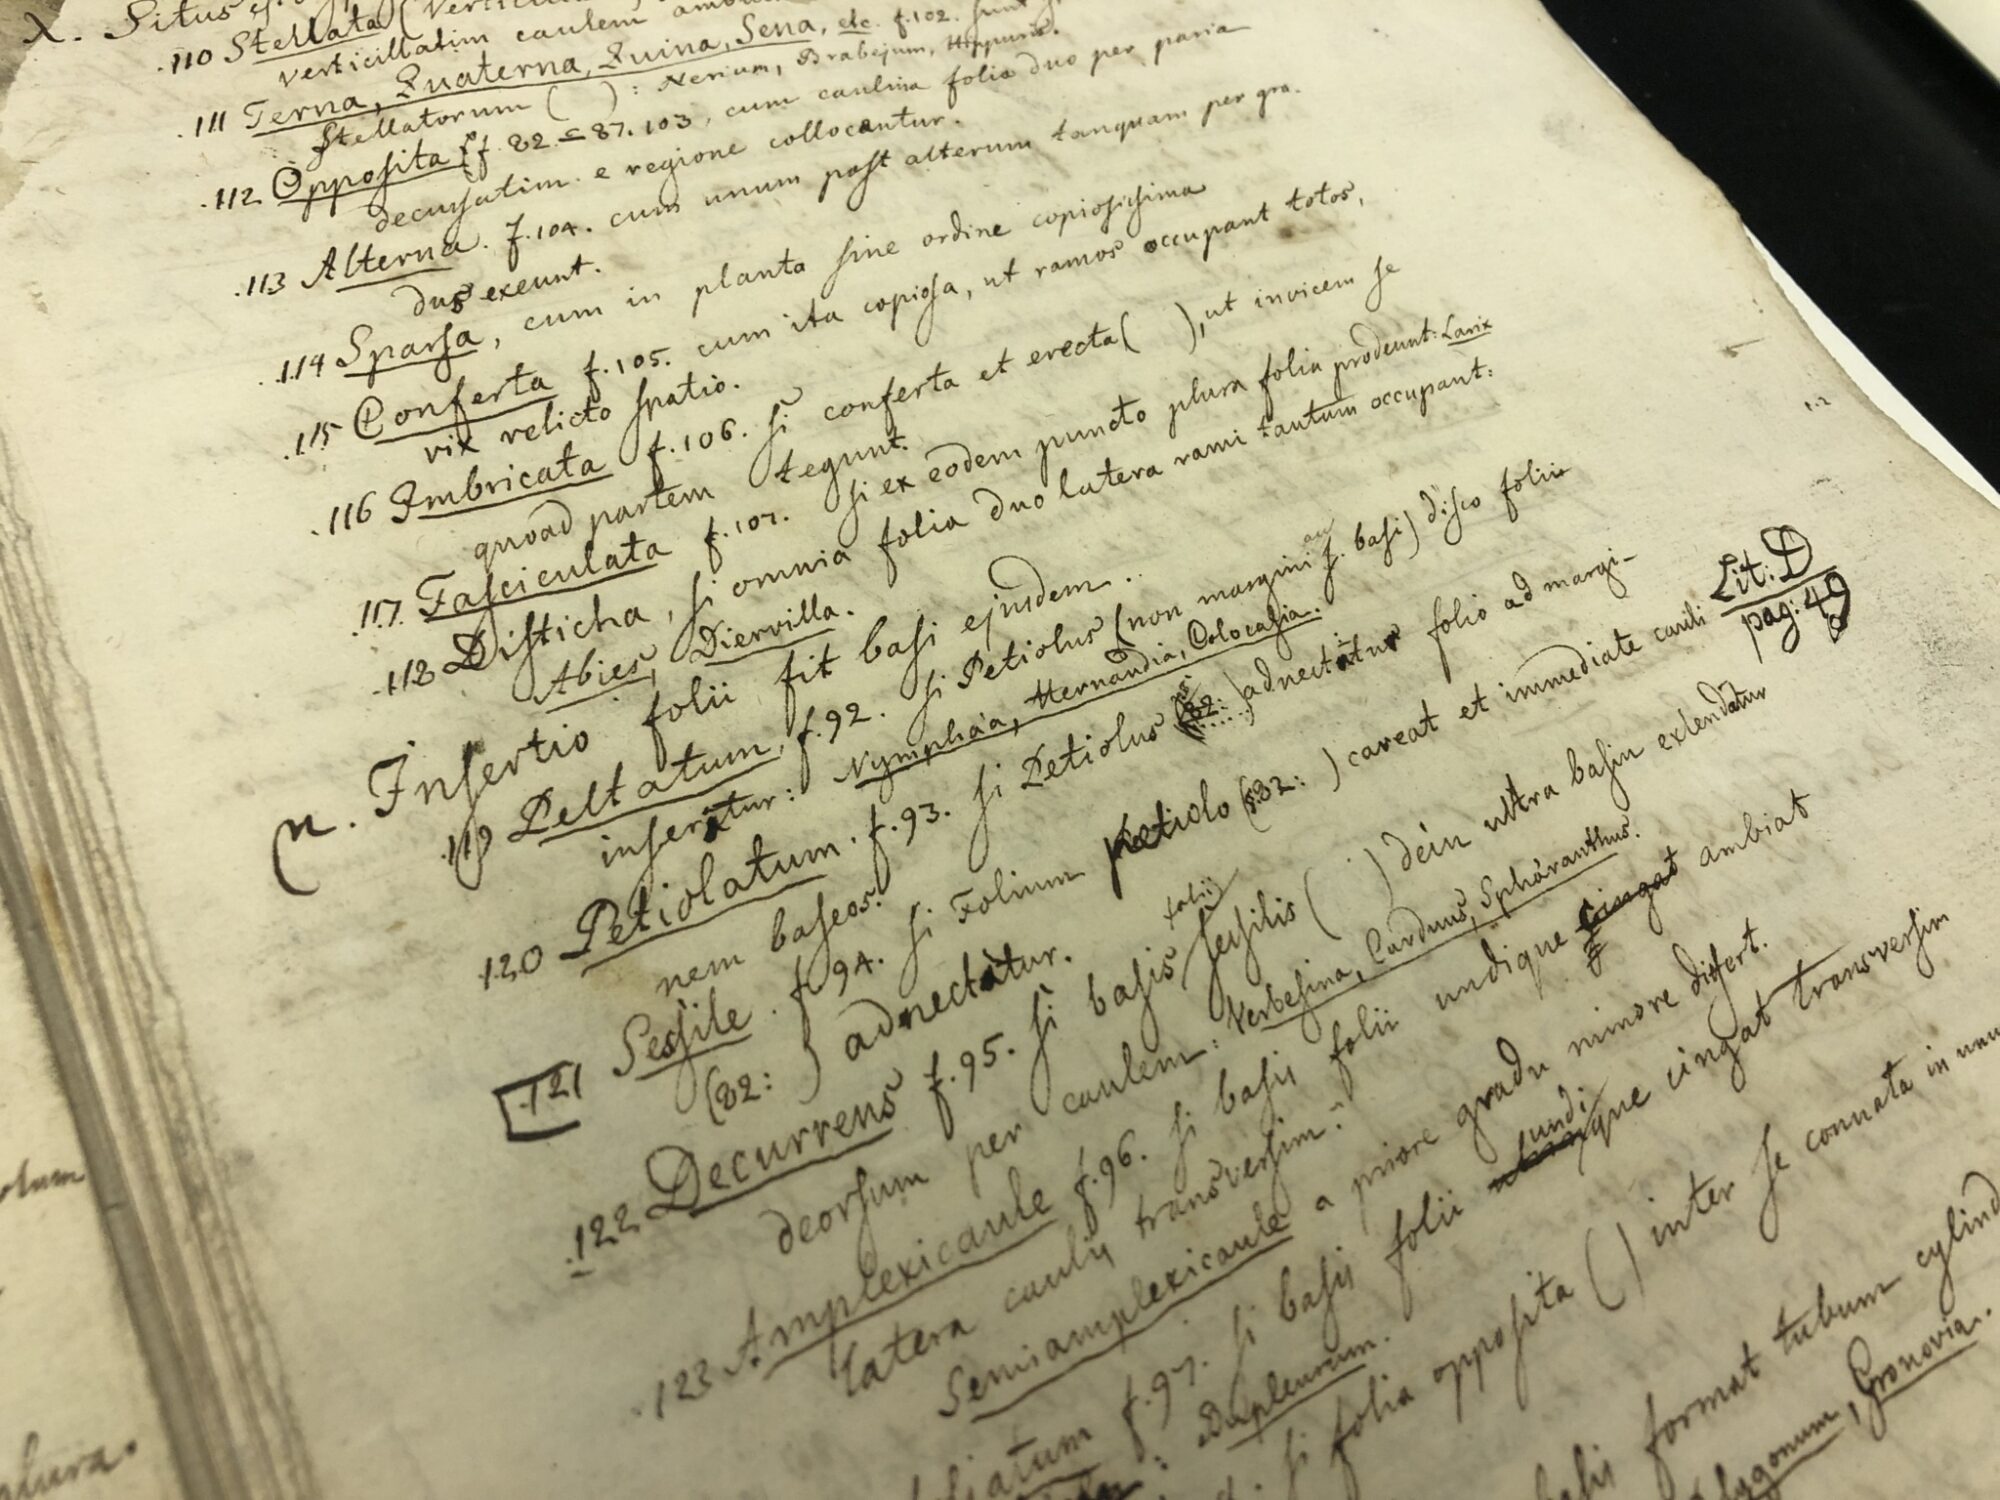 X. Situs
.110 Stellata (verticill
verticillatim caulem
.111 Terna, Quaterna, Quina, Sena, etc. f.102.
Stellatorum ( ): Nerium, Brabejum, Hippuris.
.112 Opposita ff. 82 = 87. 103, cum caulina folia duo per paria
decussatim e regione collocantur.
.113 Alterna. f.104. cum unum post alterum tanquam per gra-
dus exeunt.
.114 Sparsa, cum in planta sine ordine copiosissima
.115 Conferta f.105. cum ita copiosa, ut ramos occupant totos,
vix relicto spatio.
.116 Imbricata f.106. si conferta et erecta ( ), ut invicem se
quoad partem tegunt.
.117. Fasciculata f.107. si ex eodem puncto plura folia prodeunt: Larix
.118 Disticha, si omnia folia duo latera rami tantum occupant:
Abies, Diervilla.
n. Insertio folii fit basi ejusdem.
.119 Peltatum, f.92. si Petiolus (non margini f. basi) disco folii
inseritur: Nymphæa, Hernandia, Colocasia.
120 Petiolatum. f.93. si Petiolus (82:) adnectatur folio ad margi-
nem baseos.
Lit: D
pag: 49
.121 Sessile. f.94. si Folium petiolo (82: ) careat et immediate cauli
(82: ) adnectatur.
.122 Decurrens f.95. si basis folii sessilis ( ) dein ultra basin extendatur
deorsum per caulem: Verbesina, Carduus, Sphæranthus.
.123 Amplexicaule f.96. si basis folii undique cingat ambiat
latera caulis transversim:
Semiamplexicaule a priore gradu minore differt.
liatum f.97. si basis folii undique cingat transversim
: Bupleurum.
si folia opposita ( ) inter se connata in unu
basis format tubum cylind
lygonum, Gronovia.